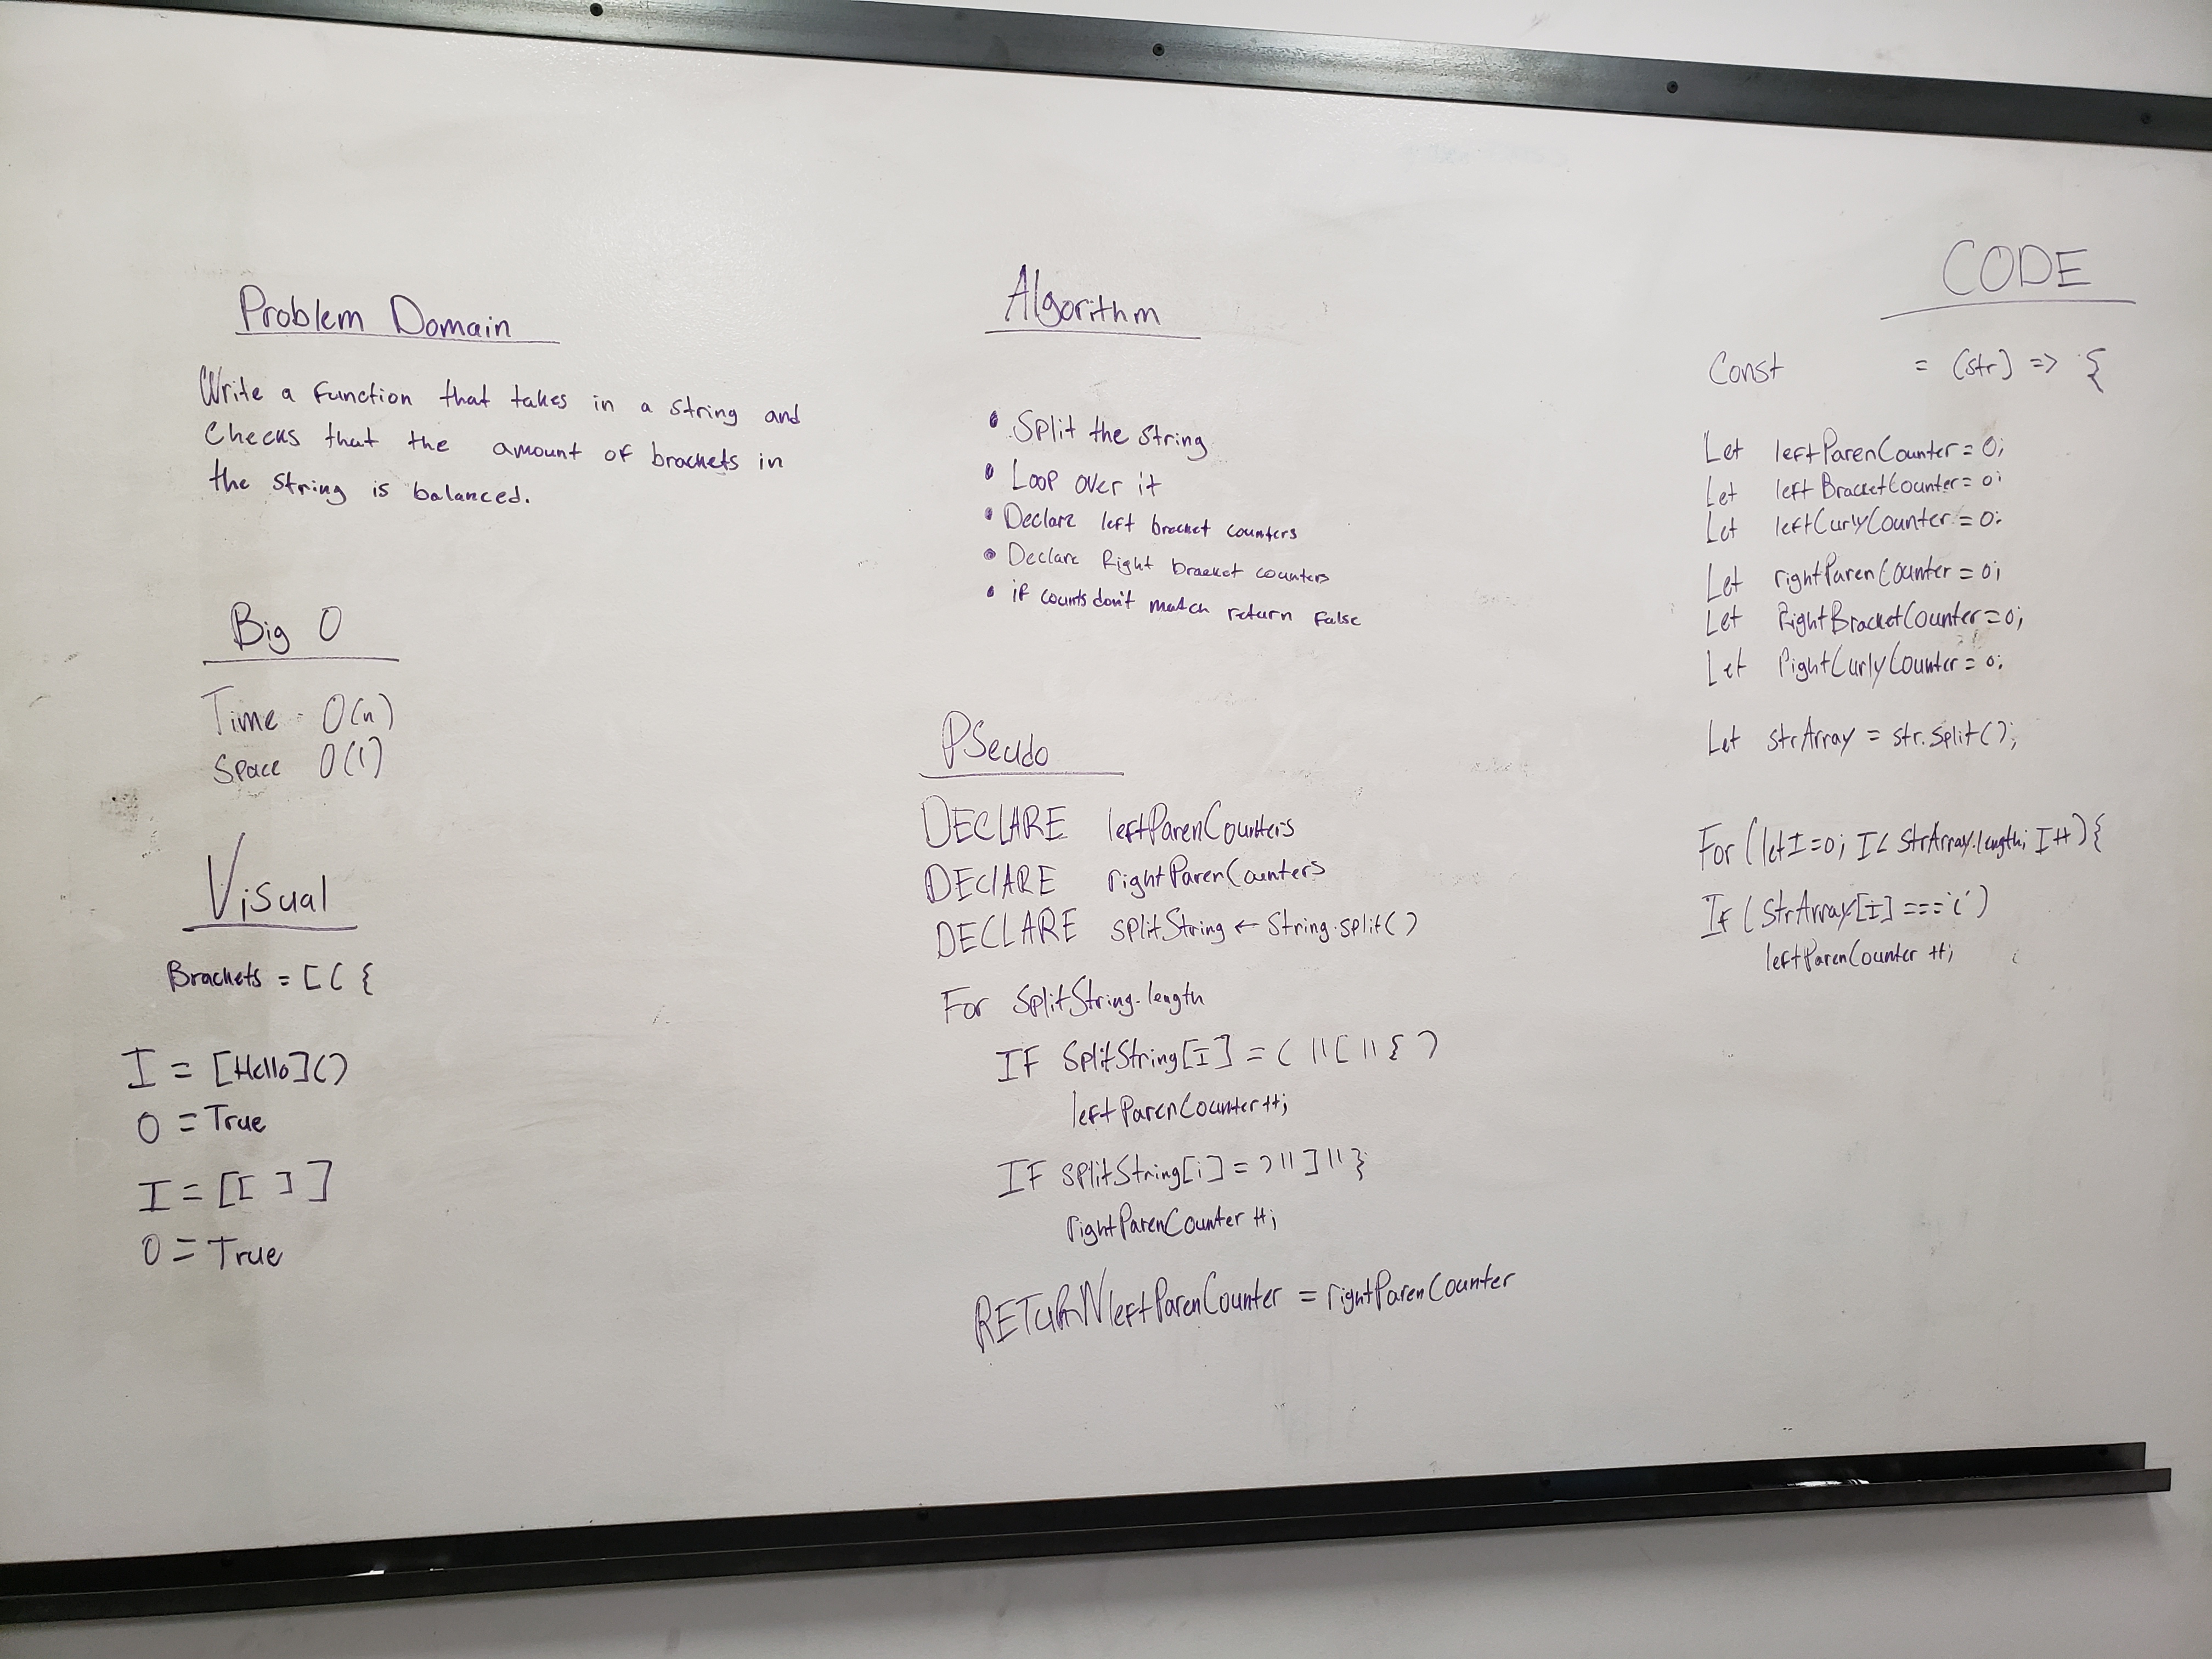 Problem Domain
Write a function that takes in a string and
Checks that the amount of brackets in
the string is balanced.
Big O
Time - O(n)
Space O(1)
Visual
Brackets = [ ( {
I = [Hello]()
O = True
I = [[ ]]
O = True
Algorithm
• Split the string
• Loop over it
• Declare left bracket counters
• Declare Right bracket counters
• if counts don't match return False
PSeudo
DECLARE leftParenCounters
DECLARE rightParenCounters
DECLARE splitString ← String.split()
For splitString.length
IF splitString[I] = ( || [ || { )
leftParenCounter++;
IF splitString[i] = ) || ] || }
rightParenCounter++;
RETURN leftParenCounter = rightParenCounter
CODE
Const = (str) => {
Let leftParenCounter = 0;
Let leftBracketCounter = 0;
Let leftCurlyCounter = 0;
Let rightParenCounter = 0;
Let RightBracketCounter = 0;
Let RightCurlyCounter = 0;
Let strArray = str.split();
For (let I = 0; I < strArray.length; I++) {
If (strArray[I] === '(')
leftParenCounter++;